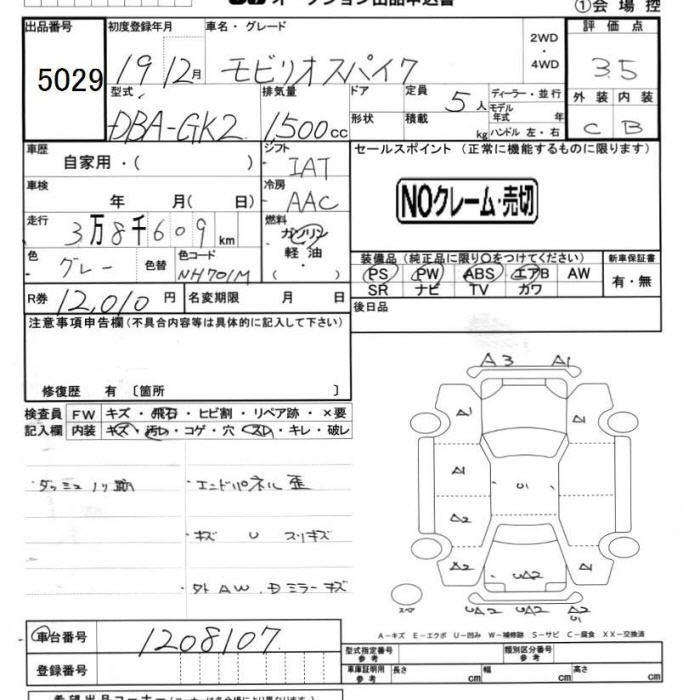 オークション出品申込書
①会場控
出品番号
5029
初度登録年月
19 12月
車名・グレード
モビリオスパイク
2WD
・
4WD
評価点
3.5
型式
DBA-GK2
排気量
1,500cc
ドア
形状
定員 5人
積載 kg
ディーラー・並行
モデル
年式 年
ハンドル 左・右
外装 内装
C B
車歴
自家用・( )
シフト
IAT
セールスポイント (正常に機能するものに限ります)
NOクレーム・売切
車検
年 月( 日)
冷房
AAC
走行
3万8千609km
燃料
ガソリン
軽油・
( )
色
グレー
色替
色コード
NH701M
装備品(純正品に限り○をつけてください)
新車保証書
PS PW ABS エアB AW
SR ナビ TV カワ
有・無
R券 12,010円
名変期限 月 日
後日品
注意事項申告欄(不具合内容等は具体的に記入して下さい)
修復歴 有 〔箇所 〕
検査員 FW キズ・飛石・ヒビ割・リペア跡・×要
記入欄 内装 キズ・汚れ・コゲ・穴・スレ・キレ・破レ
ダッシュノリ跡
エンドパネル歪
キズ U スリキズ
外AW.Dミラーキズ
A3 A1
A1 A1
A1 U1 A1
A2
A2 UA2 A1
UA2 UA2 UA2
U1
スペア
A-キズ E-エクボ U-凹み W-補修跡 S-サビ C-腐食 XX-交換済
車台番号 1208107
登録番号
型式指定番号
参考
類別区分番号
参考
車庫証明用
参考
長さ cm 幅 cm 高さ cm
希望出品コーナー